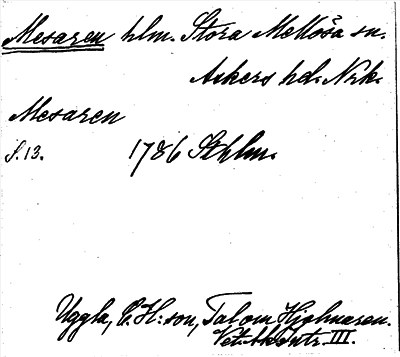 Mesaren hlm. Stora Mellösa sn.
Askers hd. Nrk.
Mesaren
S. 13. 1786 Sthlm.
Uggla, C. H:son, Tal om Hjelmaren.
Vet.
III.